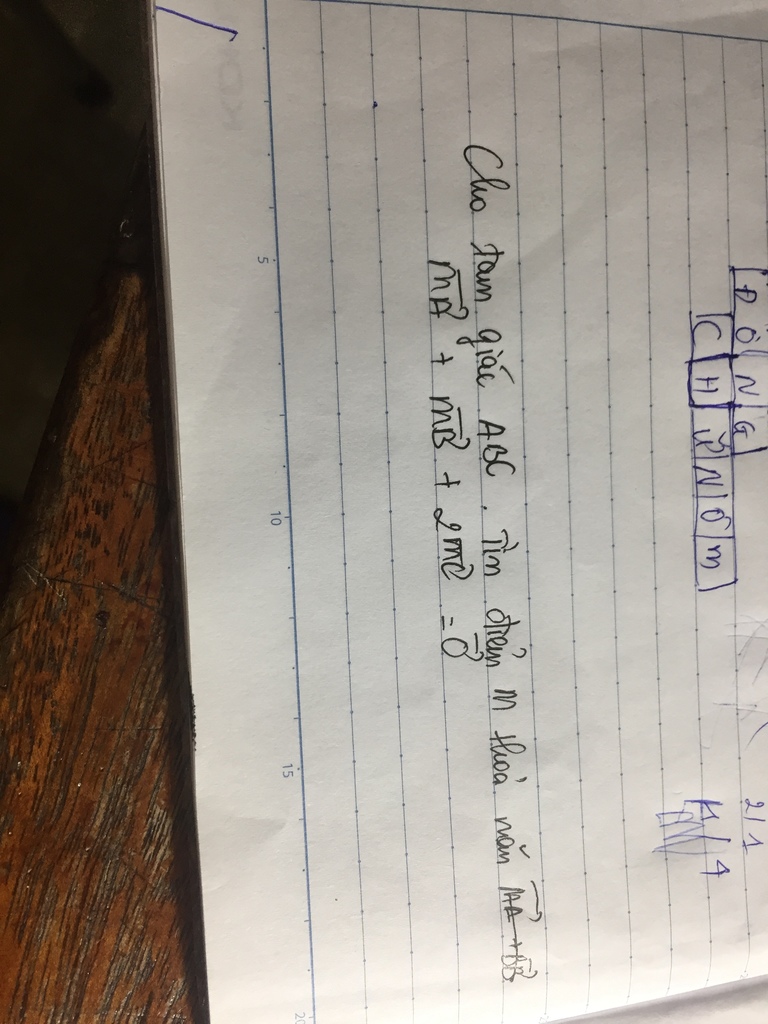 2/1
ĐÔNG
CHÙNÔM
4
Cho tam giác ABC. Tìm điểm M thoả mãn MA + BB
MA + MB + 2MC = 0
5 10 15 20